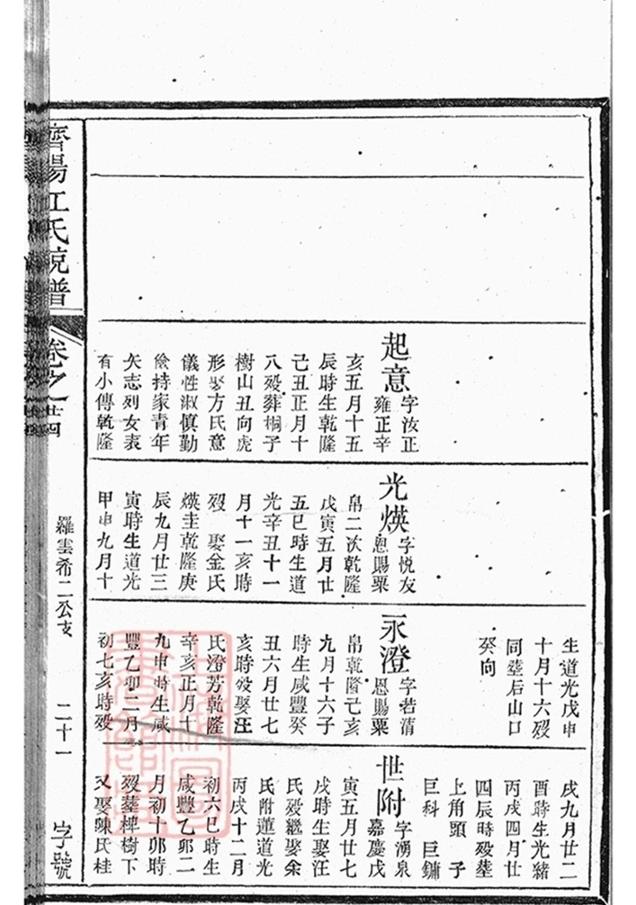 濟陽江氏統譜
卷之廿四
羅雲希二公支
二十一
字號
起意
字汝正
雍正辛
亥五月十五
辰時生乾隆
己丑正月十
八歿葬桐子
樹山丑向虎
形娶方氏意
儀性淑慎勤
儉持家青年
矢志列女表
有小傳乾隆
光煐
字悅友
恩賜粟
帛二次乾隆
戊寅五月廿
五巳時生道
光辛丑十一
月十一亥時
歿娶金氏
煐圭乾隆庚
辰九月廿三
寅時生道光
甲申九月十
生道光戊申
十月十六歿
同塟后山口
癸向
永澄
字若清
恩賜粟
帛乾隆己亥
九月十六子
時生咸豐癸
丑六月廿七
亥時歿娶汪
氏澄芳乾隆
辛亥正月十
九申時生咸
豐乙卯二月
初七亥時歿
戌九月廿二
酉時生光緒
丙戌四月廿
四辰時歿塟
上角頭子
巨科巨鏞
世附
字湧泉
嘉慶戊
寅五月廿七
戌時生娶汪
氏歿繼娶余
氏附蓮道光
丙戌十二月
初六巳時生
咸豐乙卯二
月初十卯時
歿塟椑樹下
又娶陳氏桂